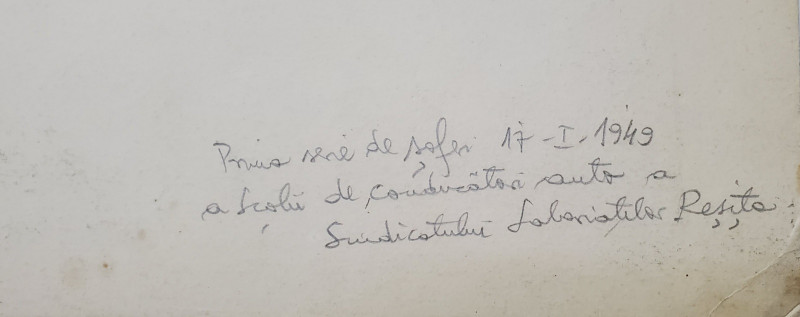 Prima serie de șoferi 17-I-1949
a Școlii de conducători auto a
Sindicatului Salariaților Reșița